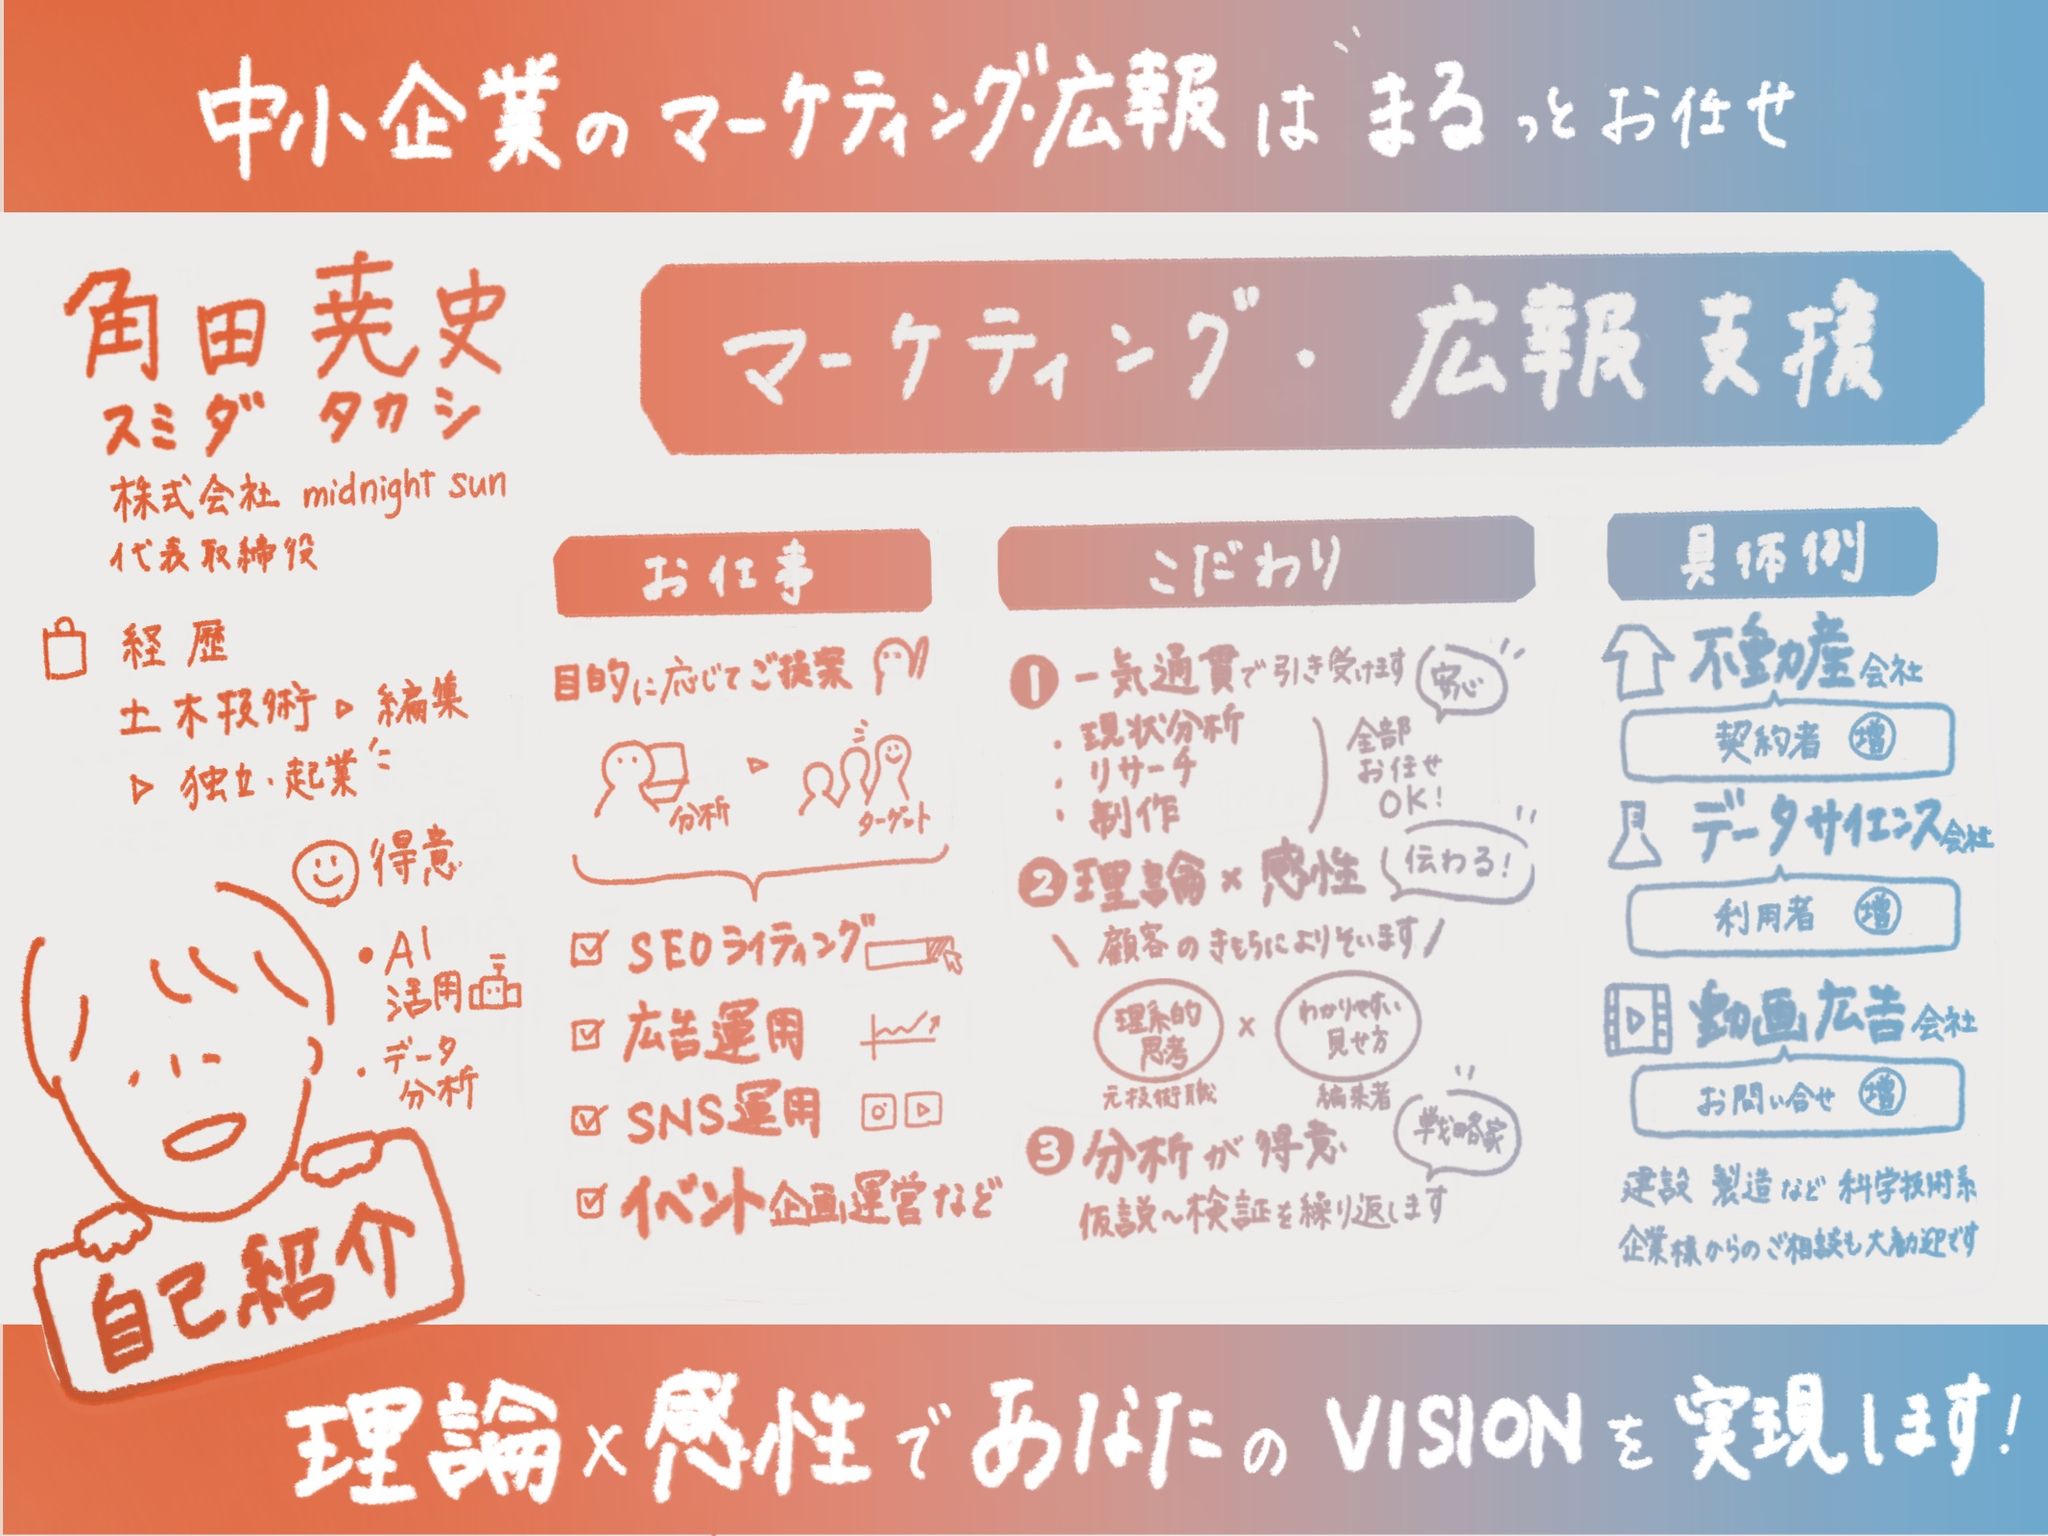 中小企業のマーケティング・広報は まるっとお任せ
角田 尭史
スミダ タカシ
株式会社 midnight sun
代表取締役
経歴
土木技術▷編集
▷独立・起業
得意
・AI
活用
・データ
分析
自己紹介
マーケティング・広報支援
お仕事
目的に応じてご提案
分析
ターゲット
SEOライティング
広告運用
SNS運用
イベント企画運営など
こだわり
① 一気通貫で引き受けます
安心
・現状分析
・リサーチ
・制作
全部
お任せ
OK!
② 理論×感性
伝わる!
\ 顧客のきもちによりそいます /
理系的
思考
×
わかりやすい
見せ方
元技術職
編集者
③ 分析が得意
戦略家
仮説〜検証を繰り返します
具体例
不動産会社
契約者 増
データサイエンス会社
利用者 増
動画広告会社
お問い合せ 増
建設 製造など 科学技術系
企業様からのご相談も大歓迎です
理論×感性であなたのVISIONを実現します!